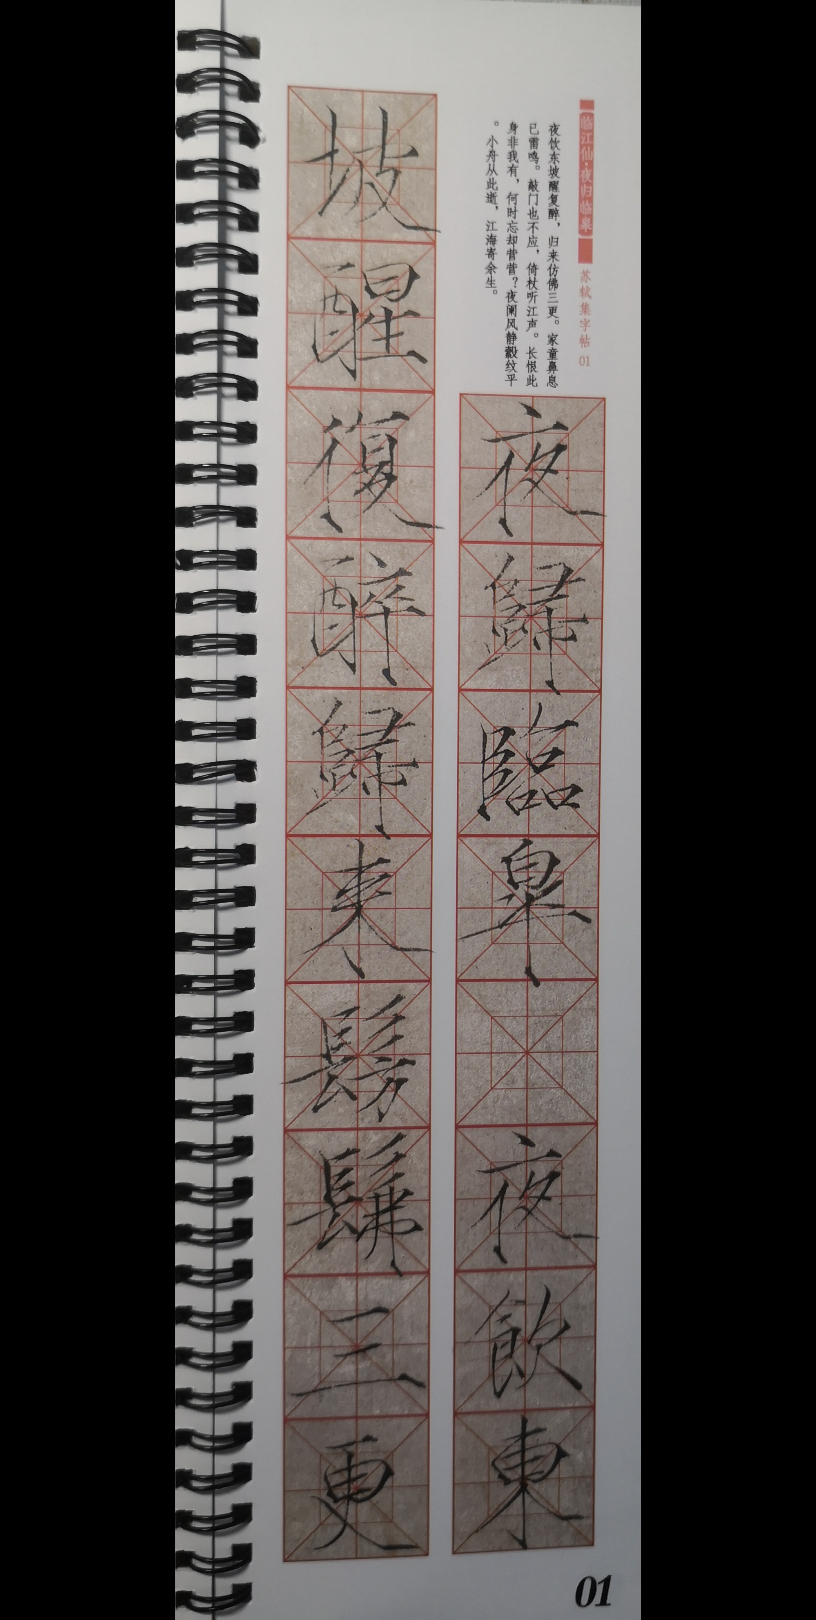 【临江仙·夜归临皋】 苏轼集字帖 01
夜饮东坡醒复醉，归来仿佛三更。家童鼻息
已雷鸣。敲门也不应，倚杖听江声。长恨此
身非我有，何时忘却营营？夜阑风静縠纹平
。小舟从此逝，江海寄余生。
夜歸臨皋 夜飲東
坡醒復醉歸来髣髴三更
01